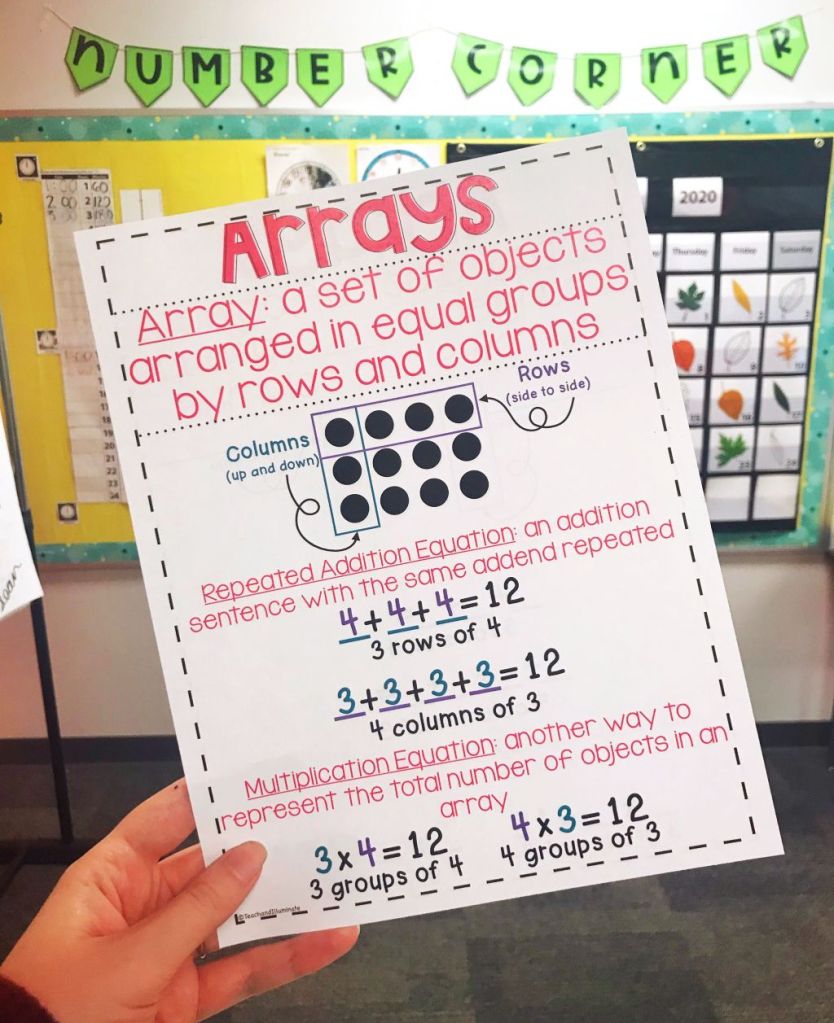 NUMBER CORNER
2020
Thursday Friday Saturday
Arrays
Array: a set of objects
arranged in equal groups
by rows and columns
Rows
(side to side)
Columns
(up and down)
Repeated Addition Equation: an addition
sentence with the same addend repeated
4+4+4=12
3 rows of 4
3+3+3+3=12
4 columns of 3
Multiplication Equation: another way to
represent the total number of objects in an
array
3x4=12
3 groups of 4
4x3=12
4 groups of 3
©TeachandIlluminate